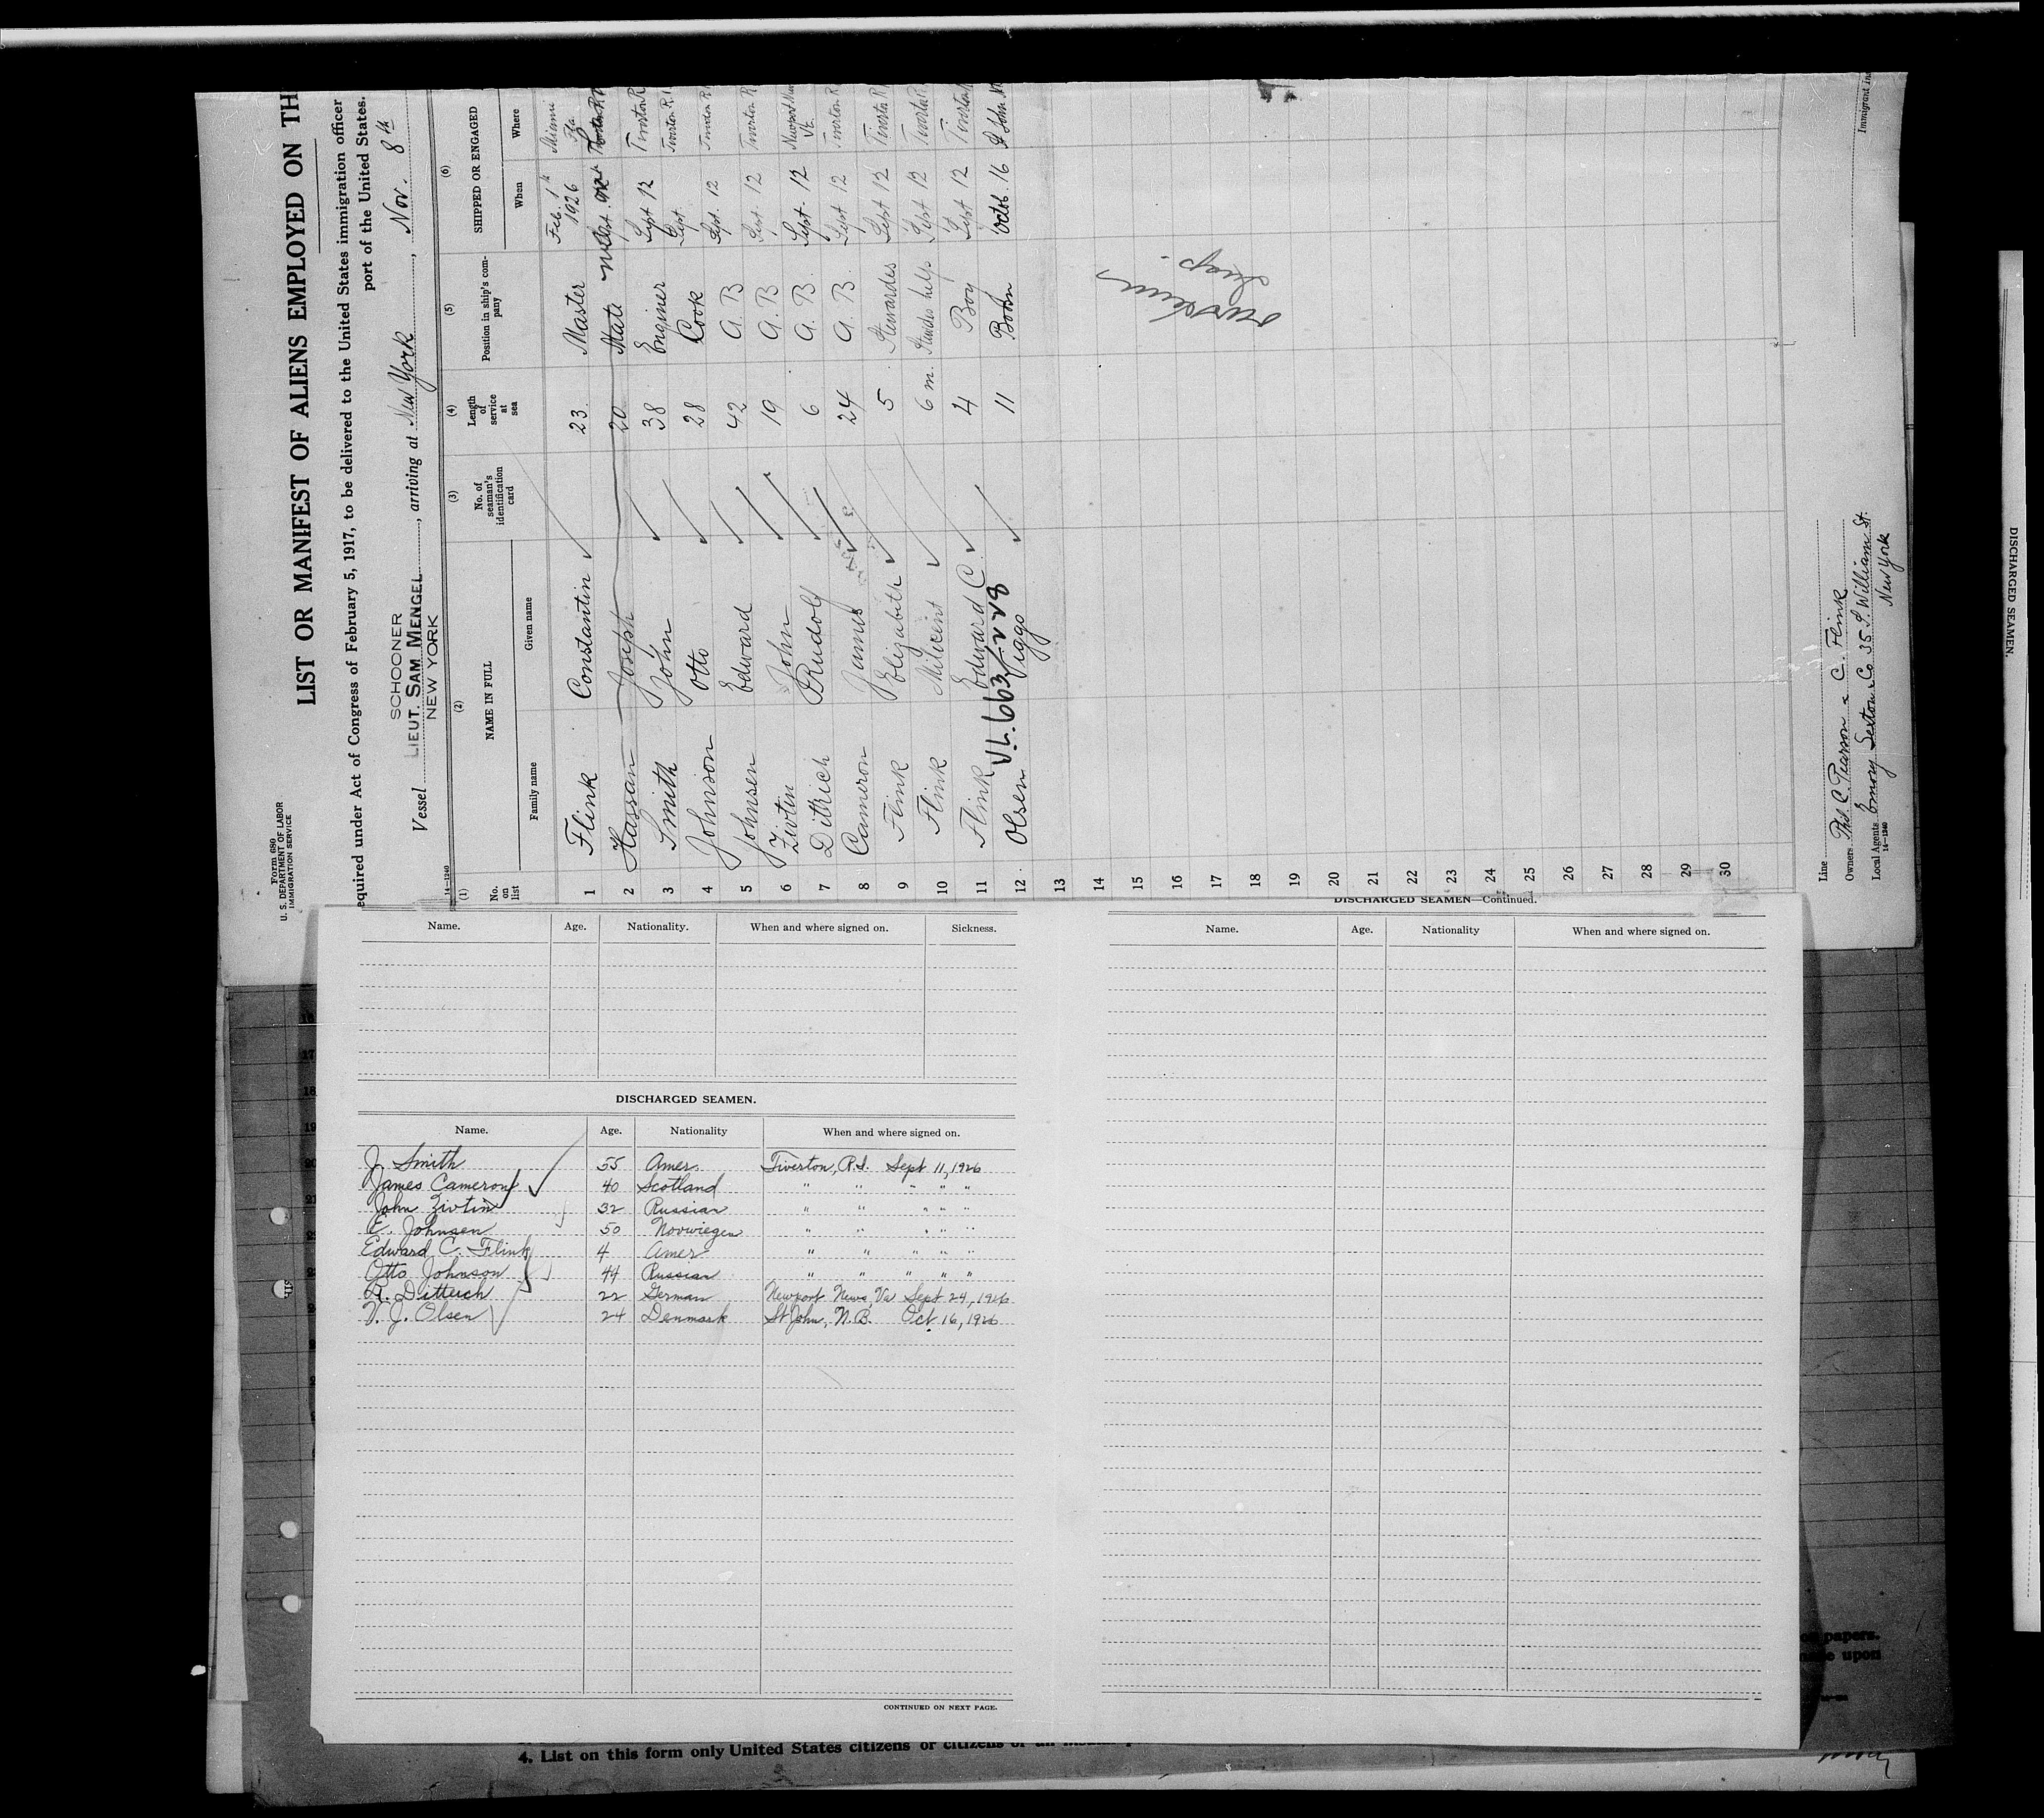 Form 680
U. S. DEPARTMENT OF LABOR
IMMIGRATION SERVICE
LIST OR MANIFEST OF ALIENS EMPLOYED ON TH
equired under Act of Congress of February 5, 1917, to be delivered to the United States immigration officer
port of the United States.
SCHOONER
Vessel LIEUT. SAM MENGEL, arriving at New York, Nov. 8th
NEW YORK
14-1240
(1) (2) (3) (4) (5) (6)
No. on list NAME IN FULL No. of seaman's identification card Length of service at sea Position in ship's com-pany SHIPPED OR ENGAGED
Family name Given name When Where
1 Flink Constantin 23 Master Feb. 1st 1926 Miami Fla
2 Hassan Joseph 20 Mate
3 Smith John 38 Enginer Sept 12 Tiverton R
4 Johnson Otto 28 Cook Sept. 12 Tiverton R I
5 Johnsen Edward 42 A. B Sept. 12 Tiverton R
6 Zivtin John 19 A. B. Sept. 12 Tiverton R
7 Dittrich Rudolf 6 A. B. Sept. 12 Newport News
8 Cameron James 24 A. B. Sept 12 Tiverton R
9 Flink Elizabeth 5 Stewardes Sept 12 Tiverton R
10 Flink Milicent 6 m. Stewdes help Sept 12 Tiverton R
11 Flink Edward C. 4 Boy Sept 12 Tiverton
12 Olsen Viggo 11 Bosn Octob. 16 St John
13
14
15
16
17
18
19
20
21
22
23
24
25
26
27
28
29
30
Line
Owners Thd C. Pearson & C. Flink
Local Agents Emory Sexton & Co 35 S. William St.
New York
14-1240
Immigrant
Name. Age. Nationality. When and where signed on. Sickness.
DISCHARGED SEAMEN.
Name. Age. Nationality When and where signed on.
J. Smith 55 Amer. Tiverton, R.I. Sept 11, 1926
James Cameron 40 Scotland " " " " "
John Zivtin 32 Russian " " " " "
E. Johnsen 50 Norwiegen " " " " "
Edward C. Flink 4 Amer " " " " "
Otto Johnson 44 Russian " " " " "
R. Ditterich 22 German Newport News, Va Sept 24, 1926
V. J. Olsen 24 Denmark St John, N.B. Oct 16, 1926
CONTINUED ON NEXT PAGE.
DISCHARGED SEAMEN—Continued.
Name. Age. Nationality When and where signed on.
papers.
upon
4. List on this form only United States citizens or citizens of an
DISCHARGED SEAMEN.